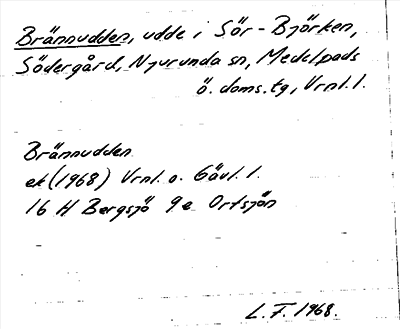 Brännudden, udde i Sör-Björken,
Södergård, Njurunda sn, Medelpads
ö. doms.tg, Vrnl. l.
Brännudden
ek (1968) Vrnl. o. Gävl. l.
16 H Bergsjö 9e Ortsjön
L. F. 1968.